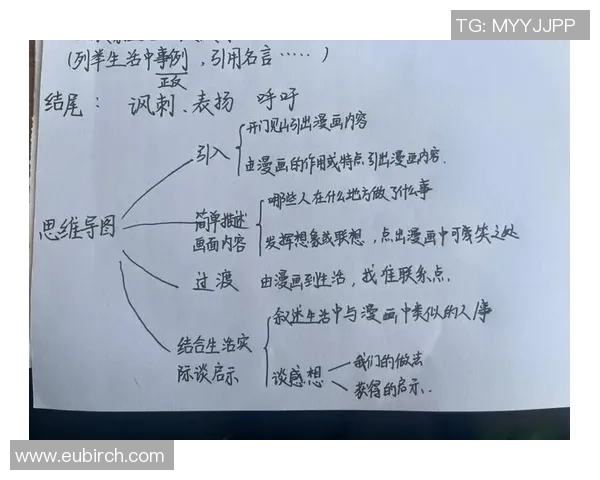 TG: MYYJJPP
(列举生活中事例，引用名言……)
正反
结尾： 讽刺、表扬 呼吁
思维导图
引入
开门见山引出漫画内容
由漫画的作用或特点引出漫画内容.
简单描述
画面内容
哪些人在什么地方做了什么事
发挥想象或联想，点出漫画中可笑之处
过渡 由漫画到生活，找准联系点.
结合生活实
际谈启示
叙述生活中与漫画中类似的人事
谈感想
我们的做法
获得的启示.
www.eubirch.com